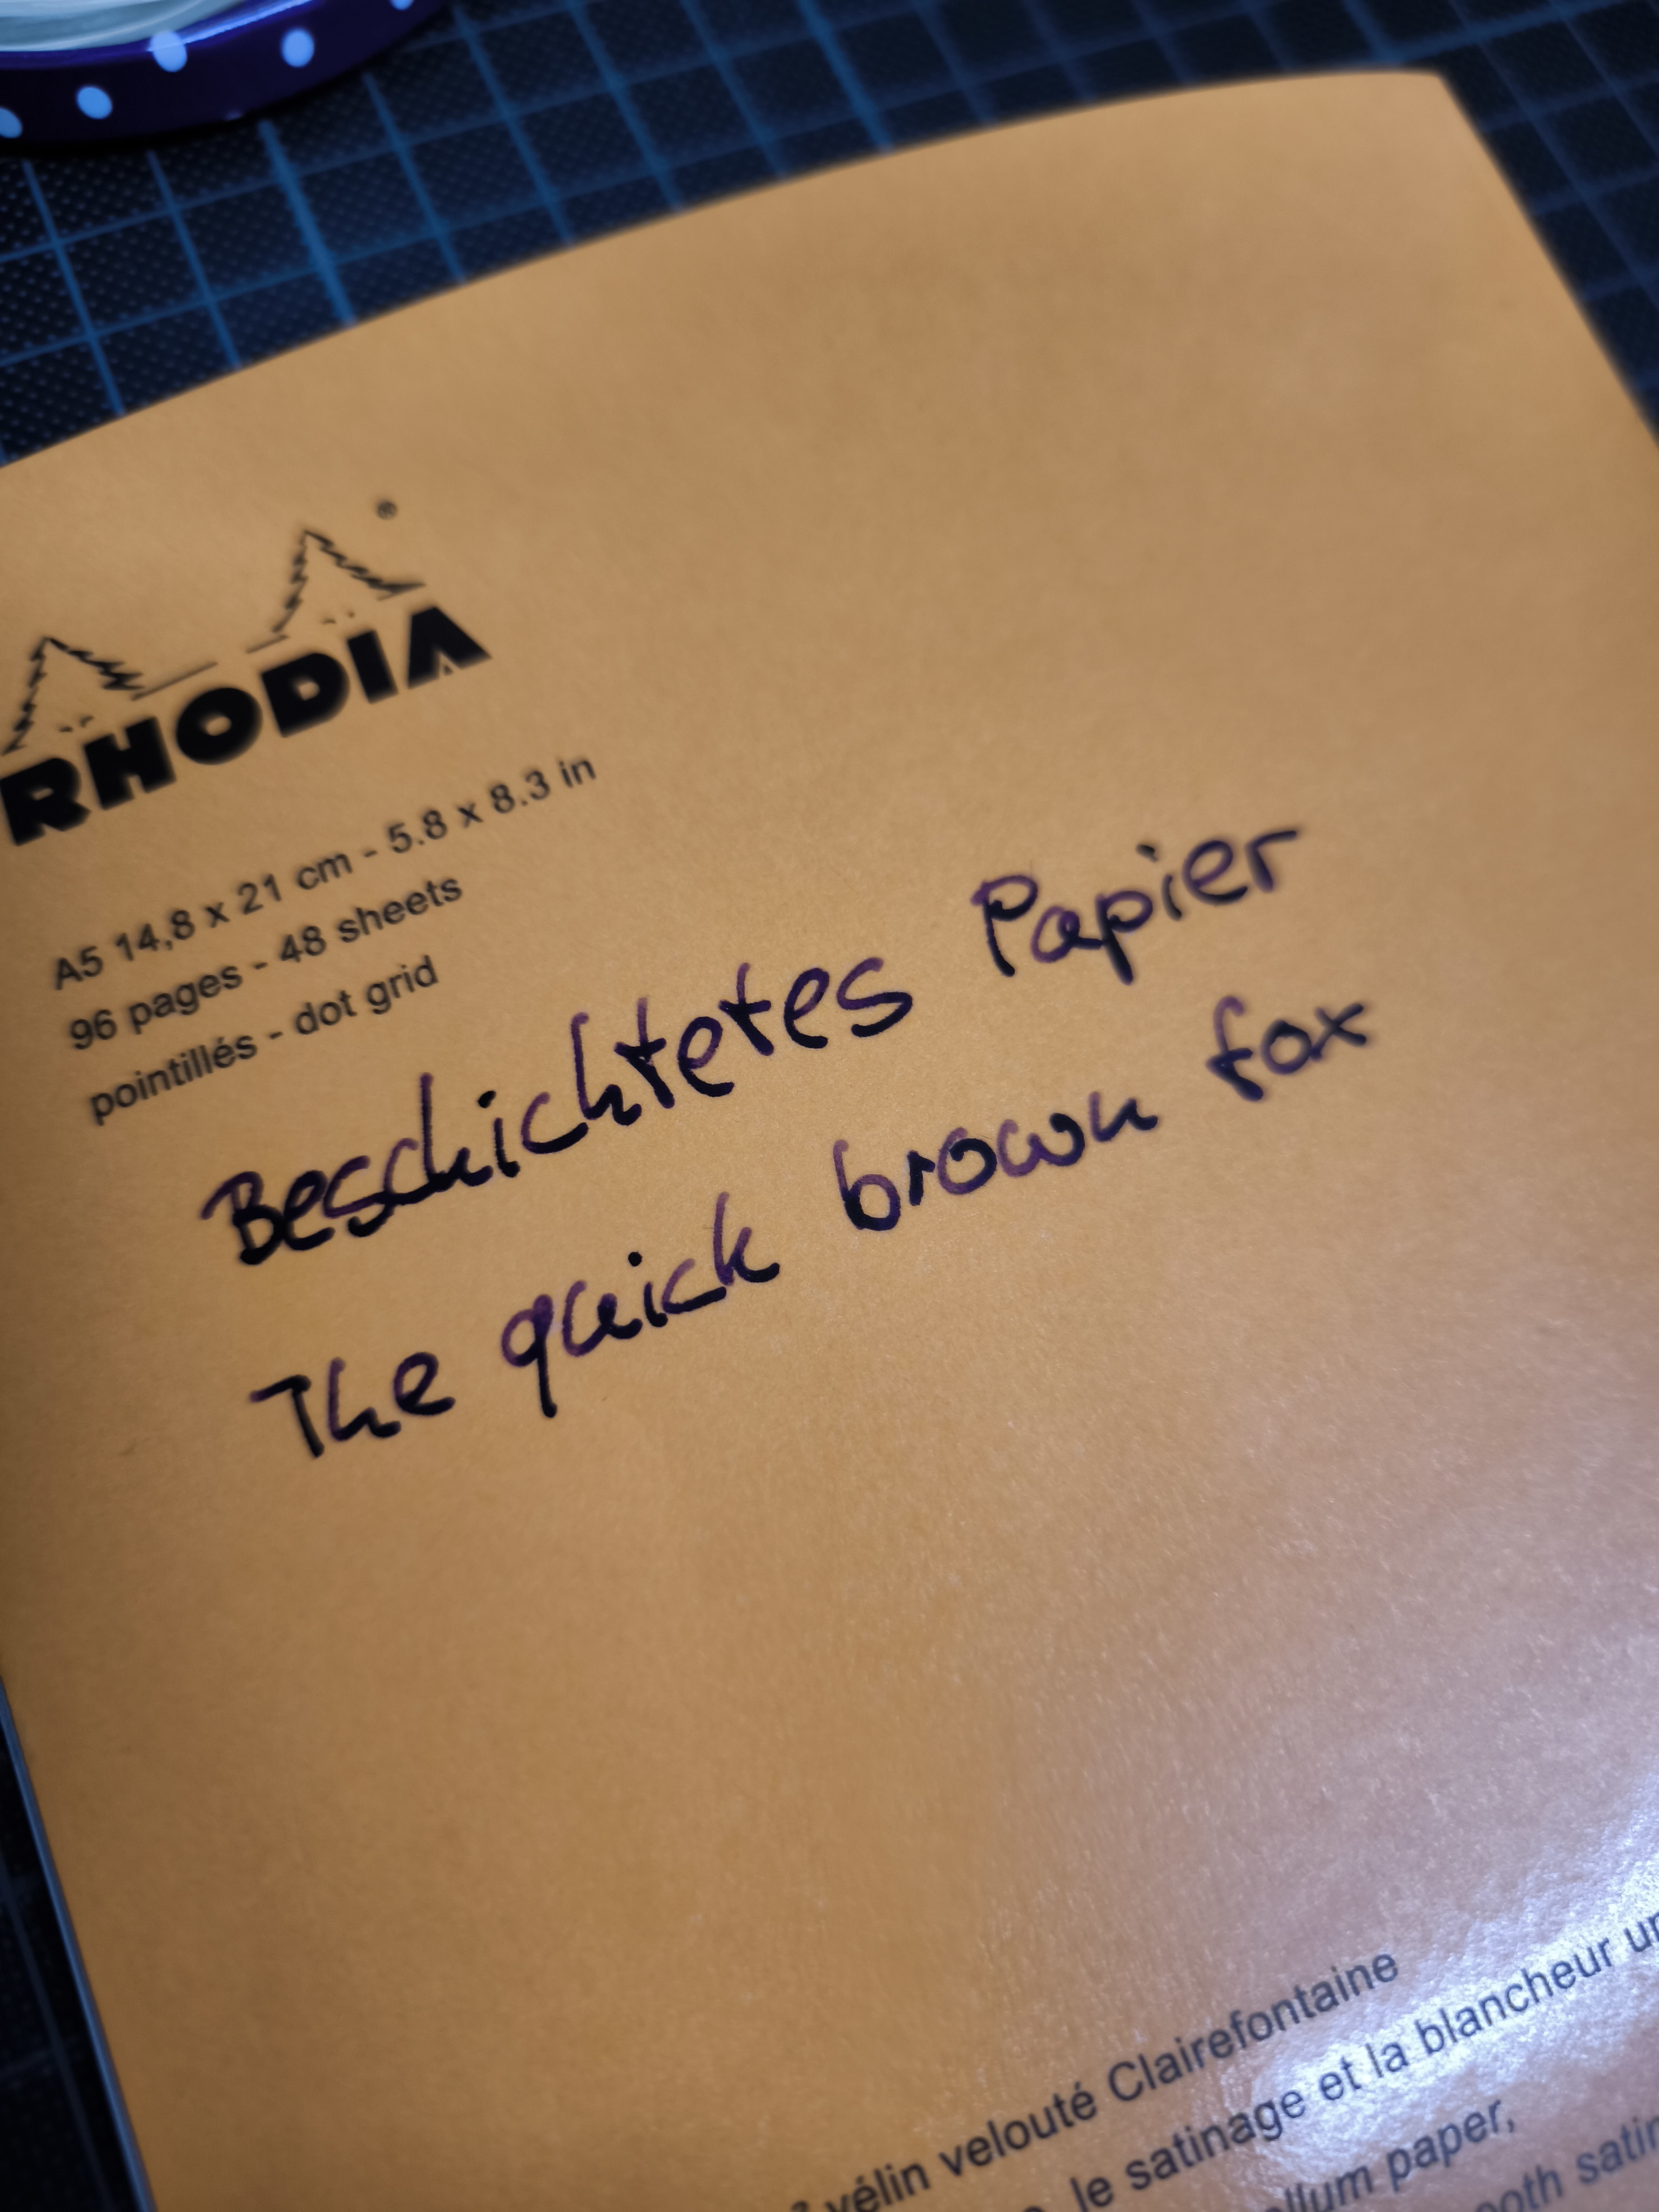 RHODIA®
A5 14,8 x 21 cm - 5.8 x 8.3 in
96 pages - 48 sheets
pointillés - dot grid
Beschichtetes Papier
The quick brown fox
vélin velouté Clairefontaine
le satinage et la blancheur
paper,